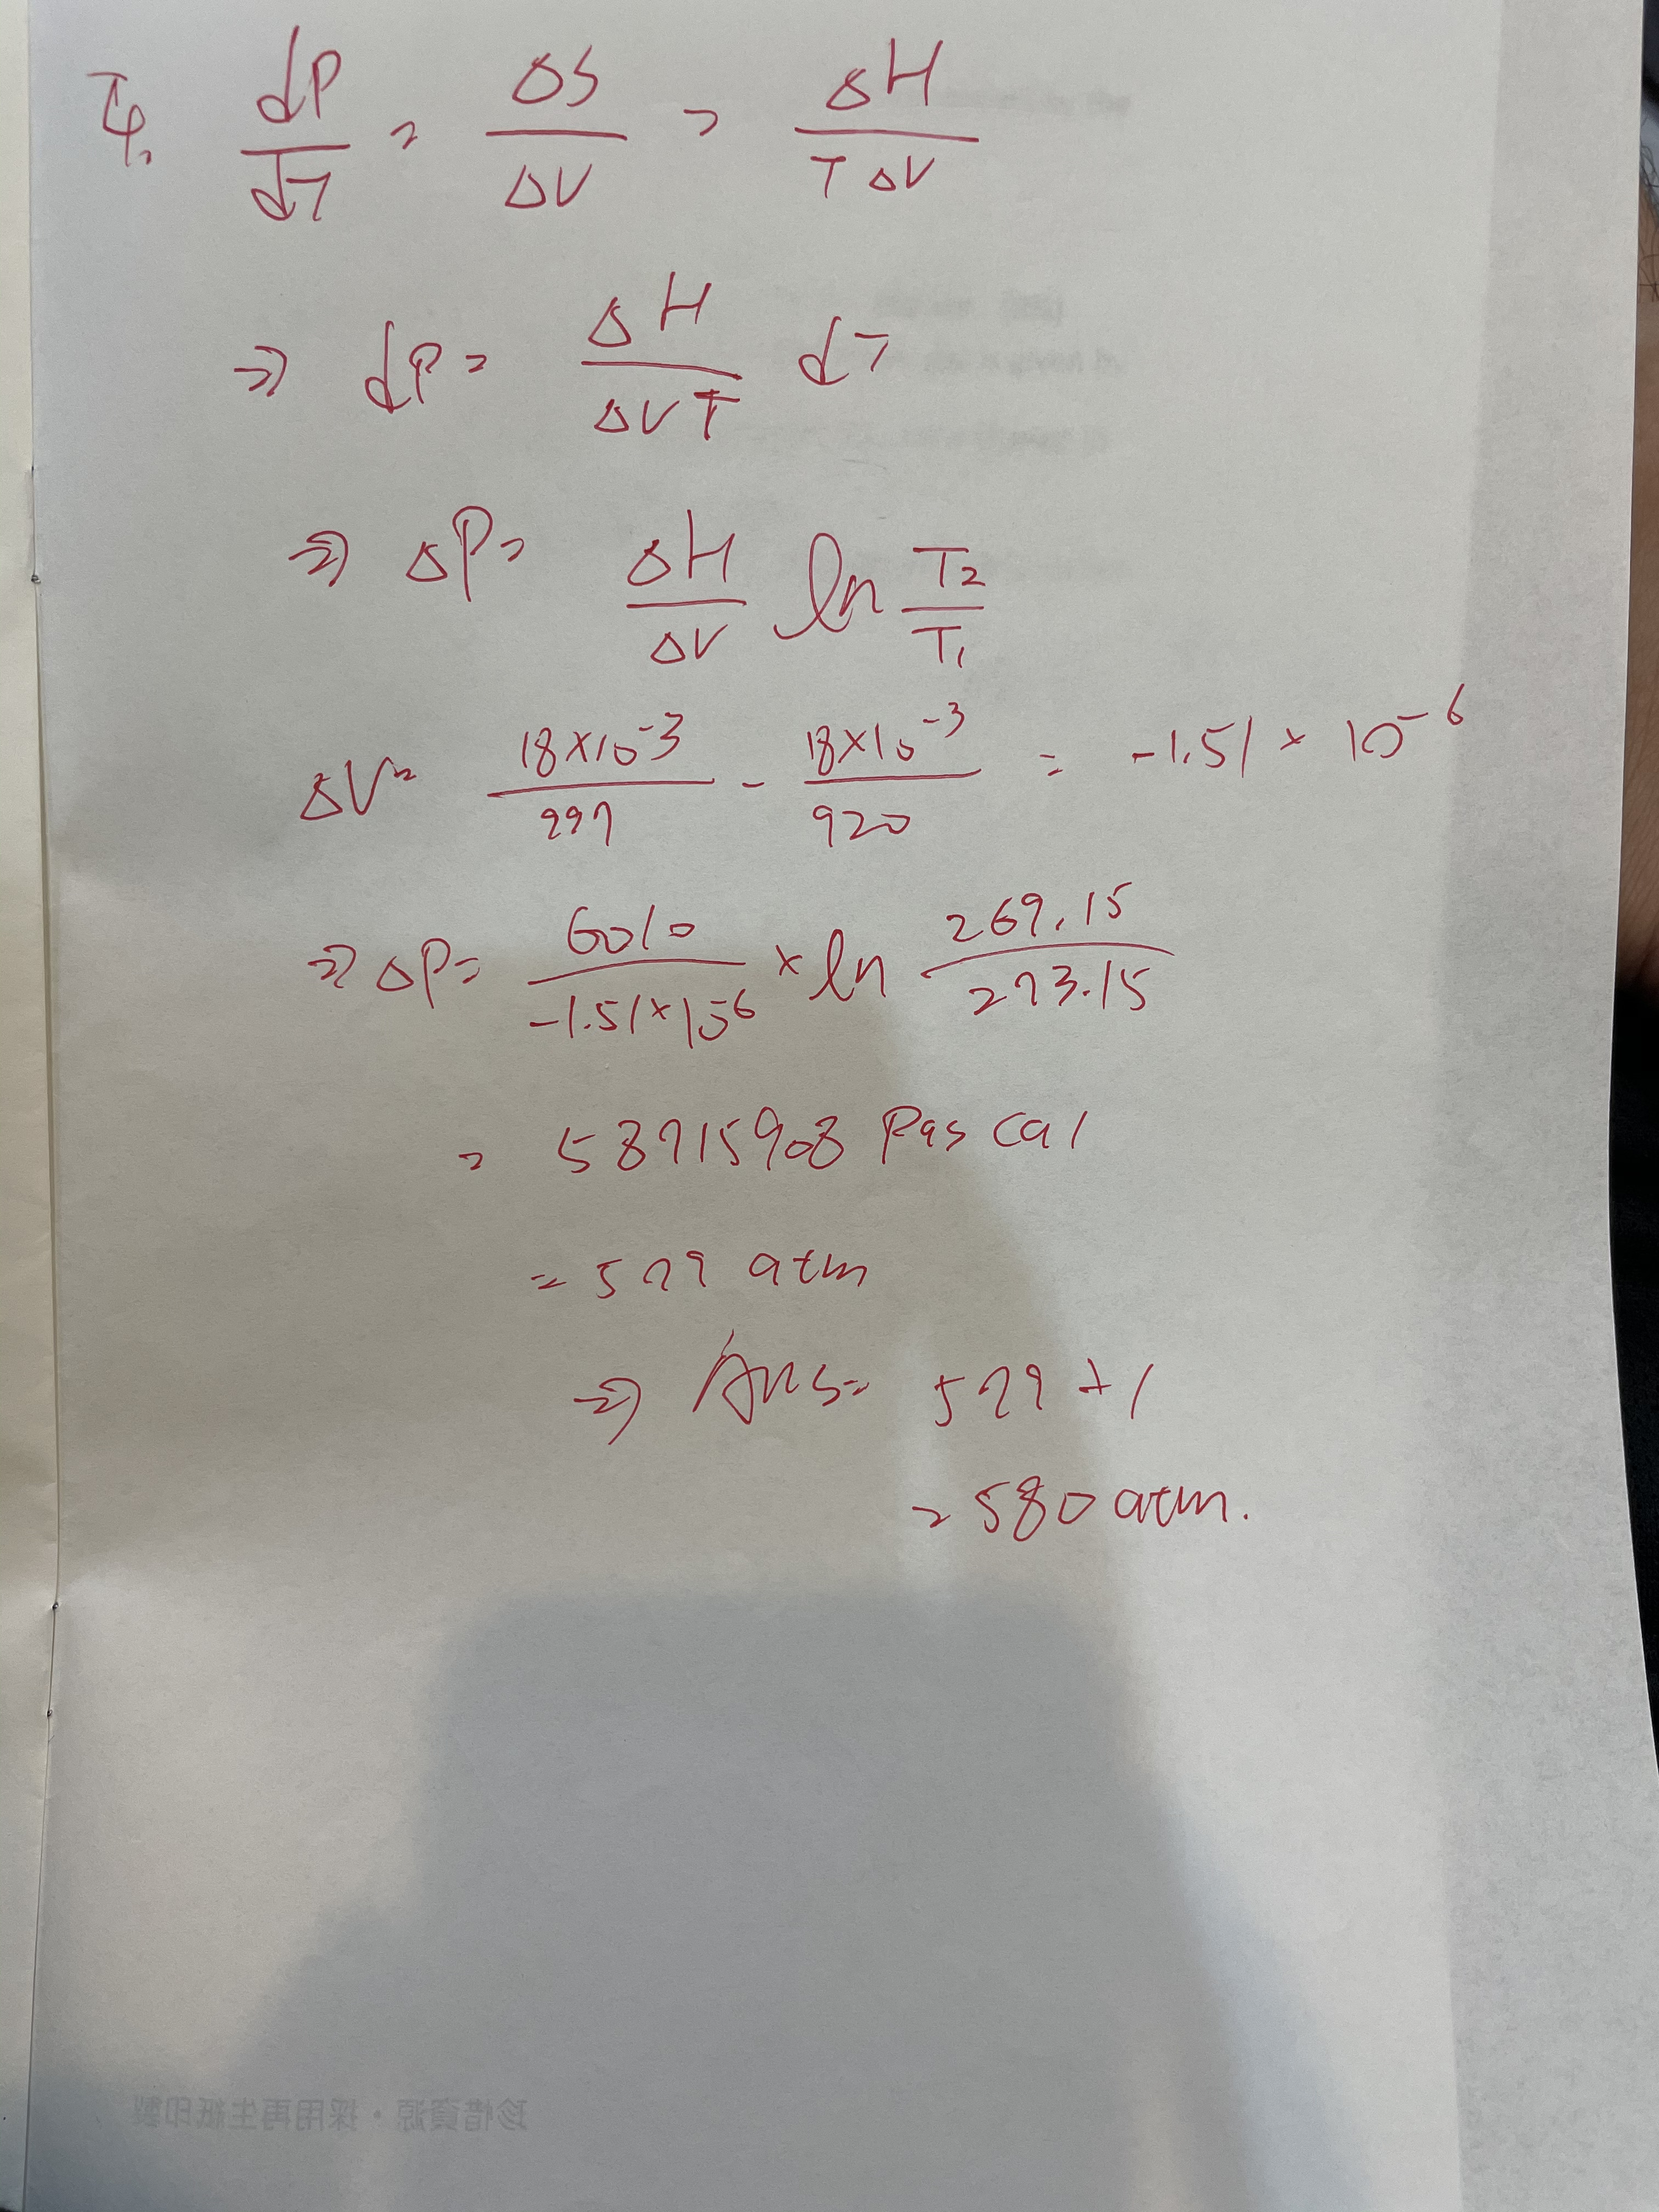 四. dP/dT = ΔS/ΔV = ΔH/TΔV
⇒ dP = ΔH/ΔVT dT
⇒ ΔP = ΔH/ΔV ln T2/T1
ΔV = 18×10^-3/997 - 18×10^-3/920 = -1.51 × 10^-6
⇒ ΔP = 6010/-1.51×10^-6 × ln 269.15/273.15
= 58715908 Pascal
= 579 atm
⇒ Ans = 579 + 1
= 580 atm.
珍惜資源・採用再生紙印製